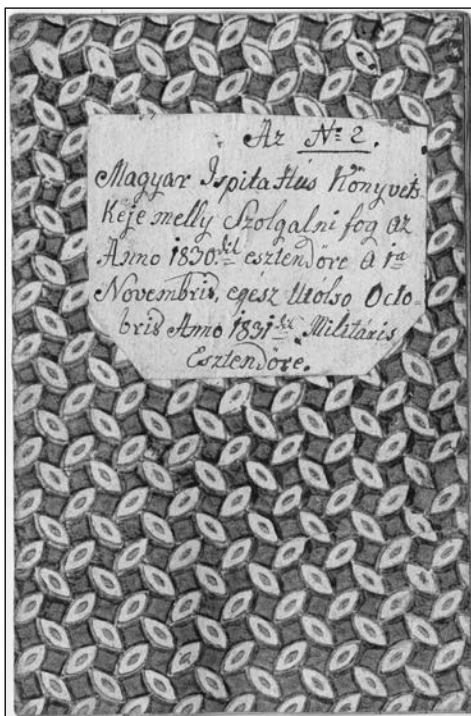 Az No 2.
Magyar Ispita Hús Könyvets-
kéje melly Szolgalni fog az
Anno 1830dik esztendőre a 1a
Novembris, egész Utolso Octo-
bris Anno 1831dik Militáris
Esztendőre.